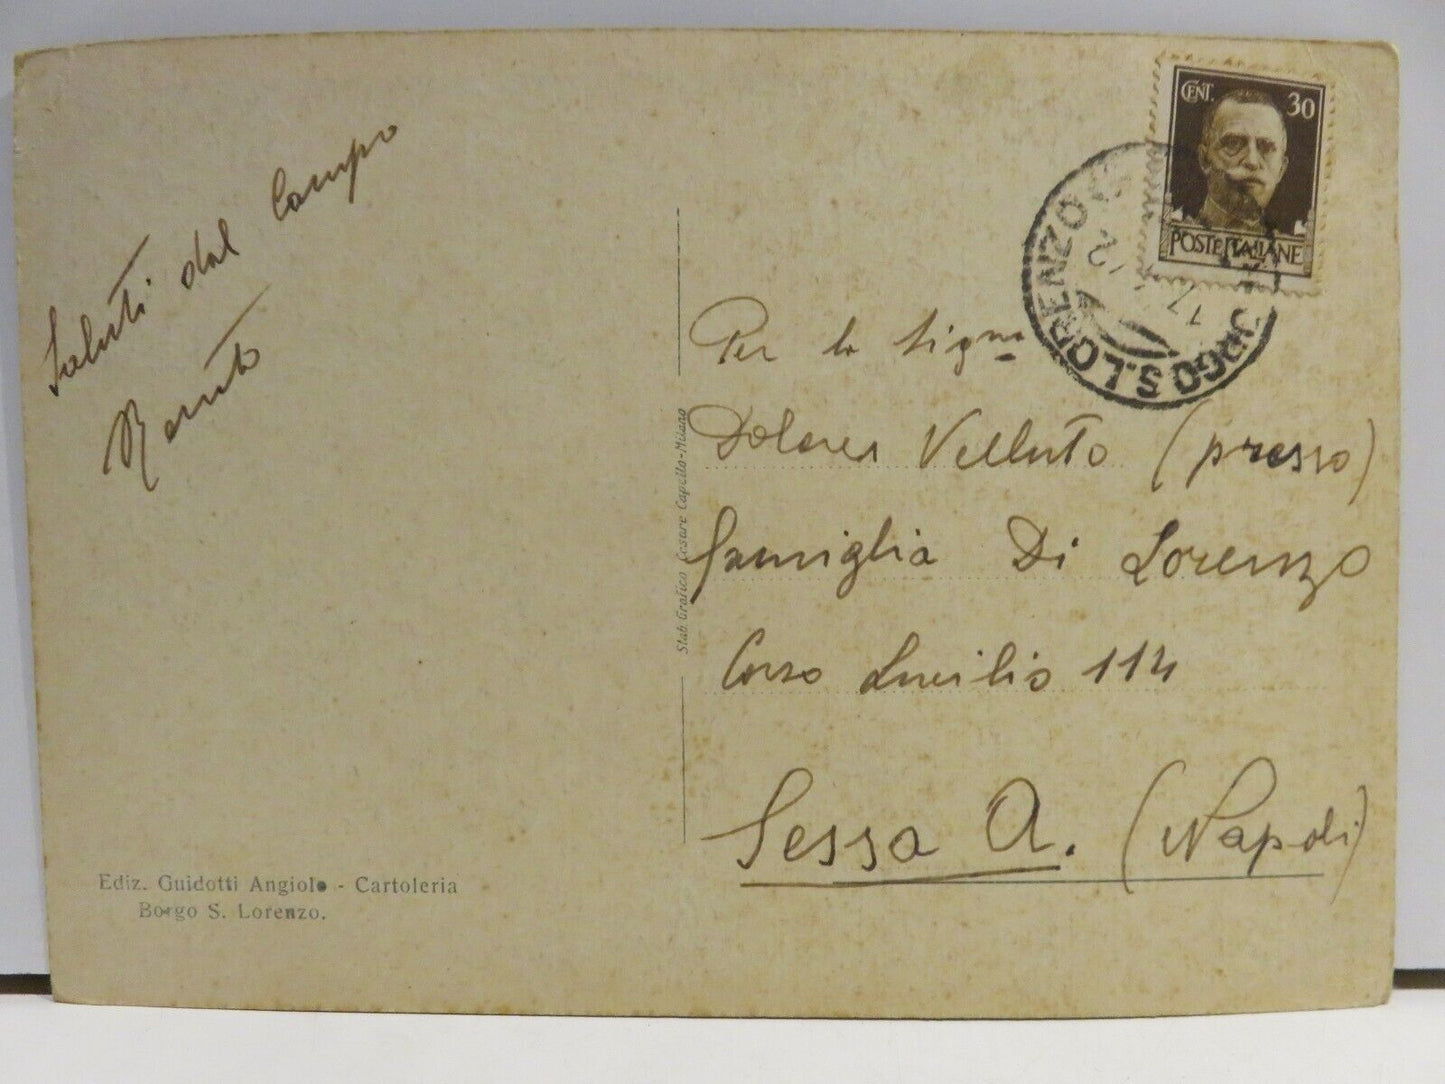 Saluti dal Campo
Renato
Ediz. Guidotti Angiolo - Cartoleria
Borgo S. Lorenzo.
Stab. Grafico Cesare Capello-Milano
CENT. 30
POSTE ITALIANE
BORGO S. LORENZO
17 12
Per la Sigᵐᵃ
Dolores Velluto (presso)
famiglia Di Lorenzo
Corso Lucilio 114
Sessa A. (Napoli)